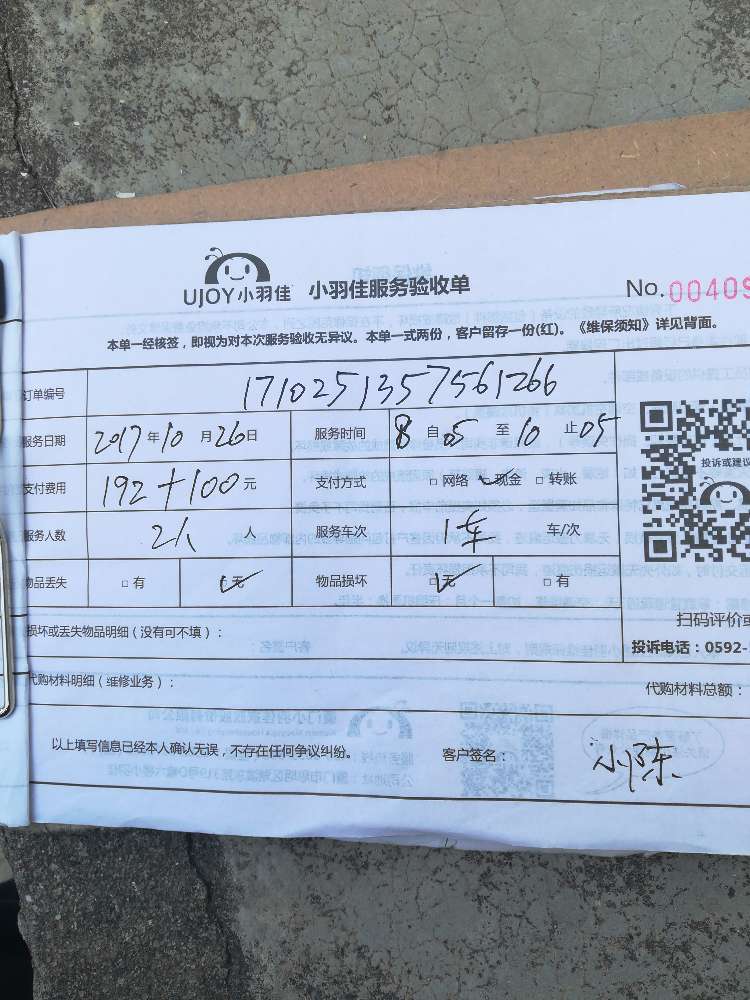 UJOY小羽佳 小羽佳服务验收单 No.00409
本单一经核签，即视为对本次服务验收无异议。本单一式两份，客户留存一份(红)。《维保须知》详见背面。
订单编号 1710251357561266
服务日期 2017年10月26日 服务时间 8自05至10止05
支付费用 192+100元 支付方式 □网络 ✓现金 □转账
服务人数 2人 人 服务车次 1车 车/次
物品丢失 □有 ☑无 物品损坏 ☑无 □有
投诉或建议
扫码评价或
损坏或丢失物品明细（没有可不填）：
投诉电话：0592-
代购材料明细（维修业务）：
代购材料总额：
以上填写信息已经本人确认无误，不存在任何争议纠纷。 客户签名： 小陈